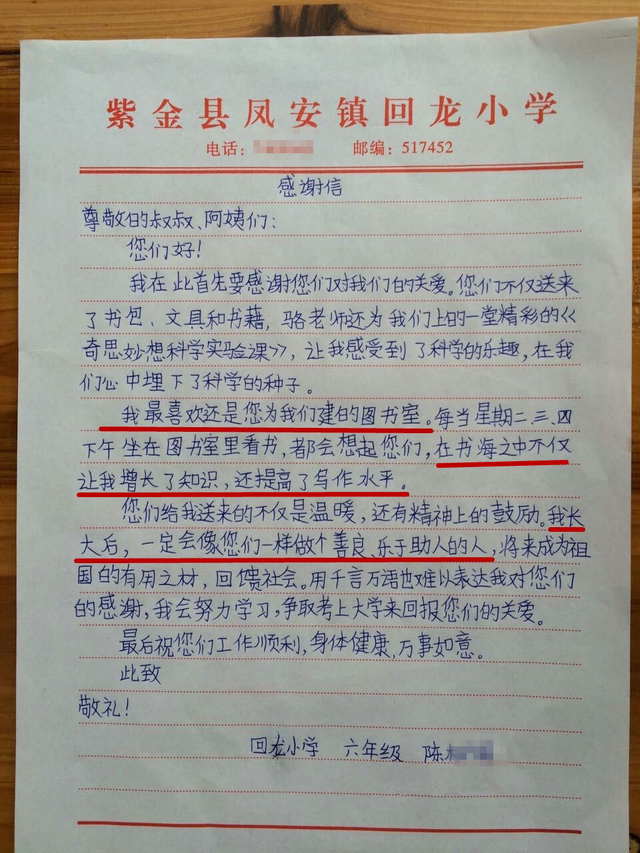 紫金县凤安镇回龙小学
电话： 邮编：517452
感谢信
尊敬的叔叔、阿姨们：
您们好！
我在此首先要感谢您们对我们的关爱。您们不仅送来
了书包、文具和书籍，骆老师还为我们上的一堂精彩的《
奇思妙想科学实验课》，让我感受到了科学的乐趣，在我
们心中埋下了科学的种子。
我最喜欢还是您为我们建的图书室。每当星期二、三、四
下午坐在图书室里看书，都会想起您们，在书海之中不仅
让我增长了知识，还提高了写作水平。
您们给我送来的不仅是温暖，还有精神上的鼓励。我长
大后，一定会像您们一样做个善良、乐于助人的人，将来成为祖
国的有用之材，回馈社会。用千言万语也难以表达我对您们
的感谢，我会努力学习，争取考上大学来回报您们的关爱。
最后祝您们工作顺利，身体健康，万事如意。
此致
敬礼！
回龙小学 六年级 陈